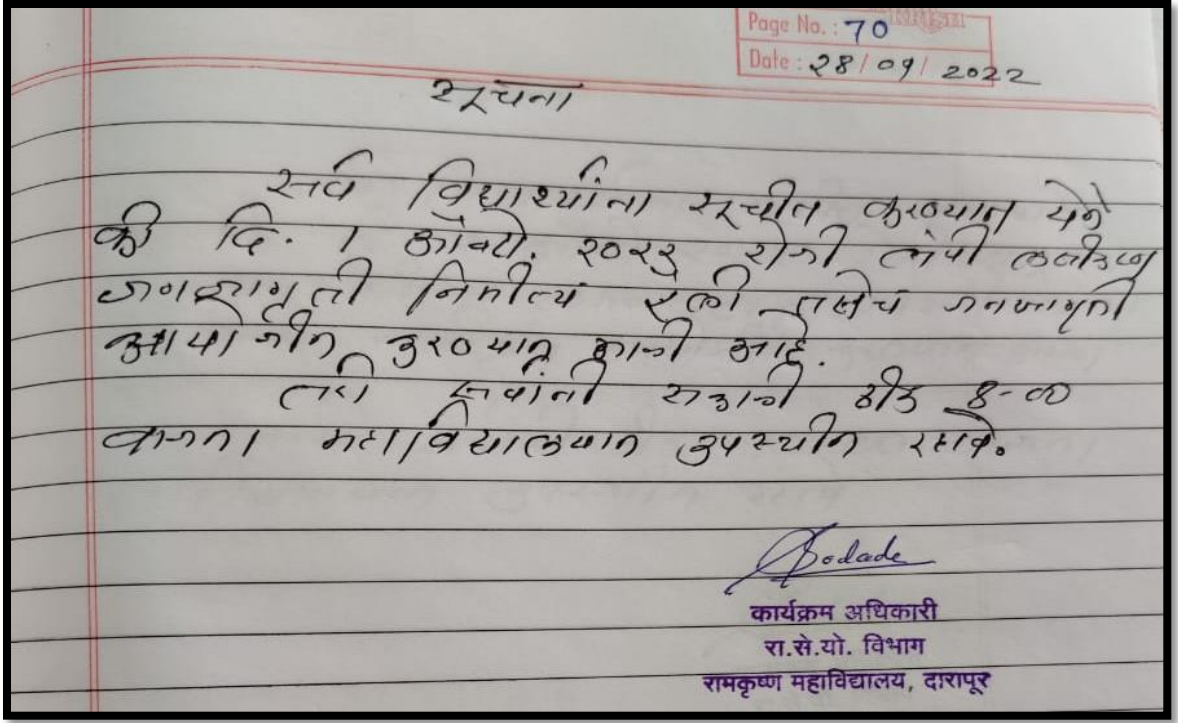 Page No. : 70
Date : २८/ ०९/ २०२२
सूचना
सर्व विद्यार्थ्यांना सूचीत करण्यात येते
की दि. १ ऑक्टो. २०२२ रोजी लंपी लसीकरण
जणजागृती निमीत्य रॅली तसेच जनजागृती
आयोजीत करण्यात आली आहे.
तरी सर्वांनी सकाळी ठीक ८-००
वाजता महाविद्यालयात उपस्थीत रहावे.
Bodade
कार्यक्रम अधिकारी
रा.से.यो. विभाग
रामकृष्ण महाविद्यालय, दारापूर